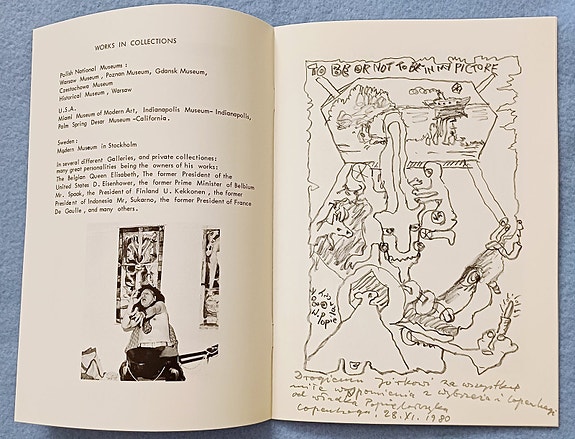 WORKS IN COLLECTIONS
Polish National Museums :
Warsaw Museum , Poznan Museum, Gdansk Museum,
Czestochowa Museum
Historical Museum , Warsaw
U.S.A.
Miami Museum of Modern Art, Indianapolis Museum- Indianapolis,
Palm Spring Desar Museum -California .
Sweden :
Modern Museum in Stockholm
In several different Galleries, and private collectiones:
many great personalities being the owners of his works:
The Belgian Queen Elisabeth, The former President of the
United States D. Eisenhower, the former Prime Minister of Belbium
Mr. Spaak, the President of Finland U. Kekkonen , the former
President of Indonesia Mr, Sukarno, the former President of France
De Gaulle , and many others .
TO BE OR NOT TO BE IN MY PICTURE
Drogiemu Józkowi za wszystkie
miłe wspomnienia z wybrzeża i Copenhagi
od władka
Copenhaga, 28.XI. 1980